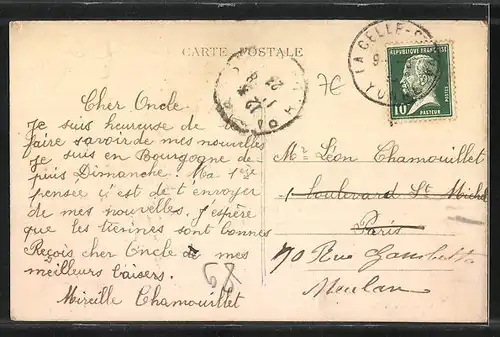 CARTE POSTALE
LA CELLE-S
YONNE
REPUBLIQUE FRANÇAISE
POSTES
10
PASTEUR
7€
Cher Oncle
Je suis heureuse de te
faire savoir de mes nouvelles
je suis en Bourgogne de-
puis Dimanche. Ma 1ère
pensée c'est de t'envoyer
de mes nouvelles. J'espère
que les tiennes sont bonnes
Reçois cher Oncle de mes
meilleurs baisers.
Mireille Chamouillet
Mr Léon Chamouillet
1 boulevard St Michel
Paris
70 Rue Gambetta
Meulan